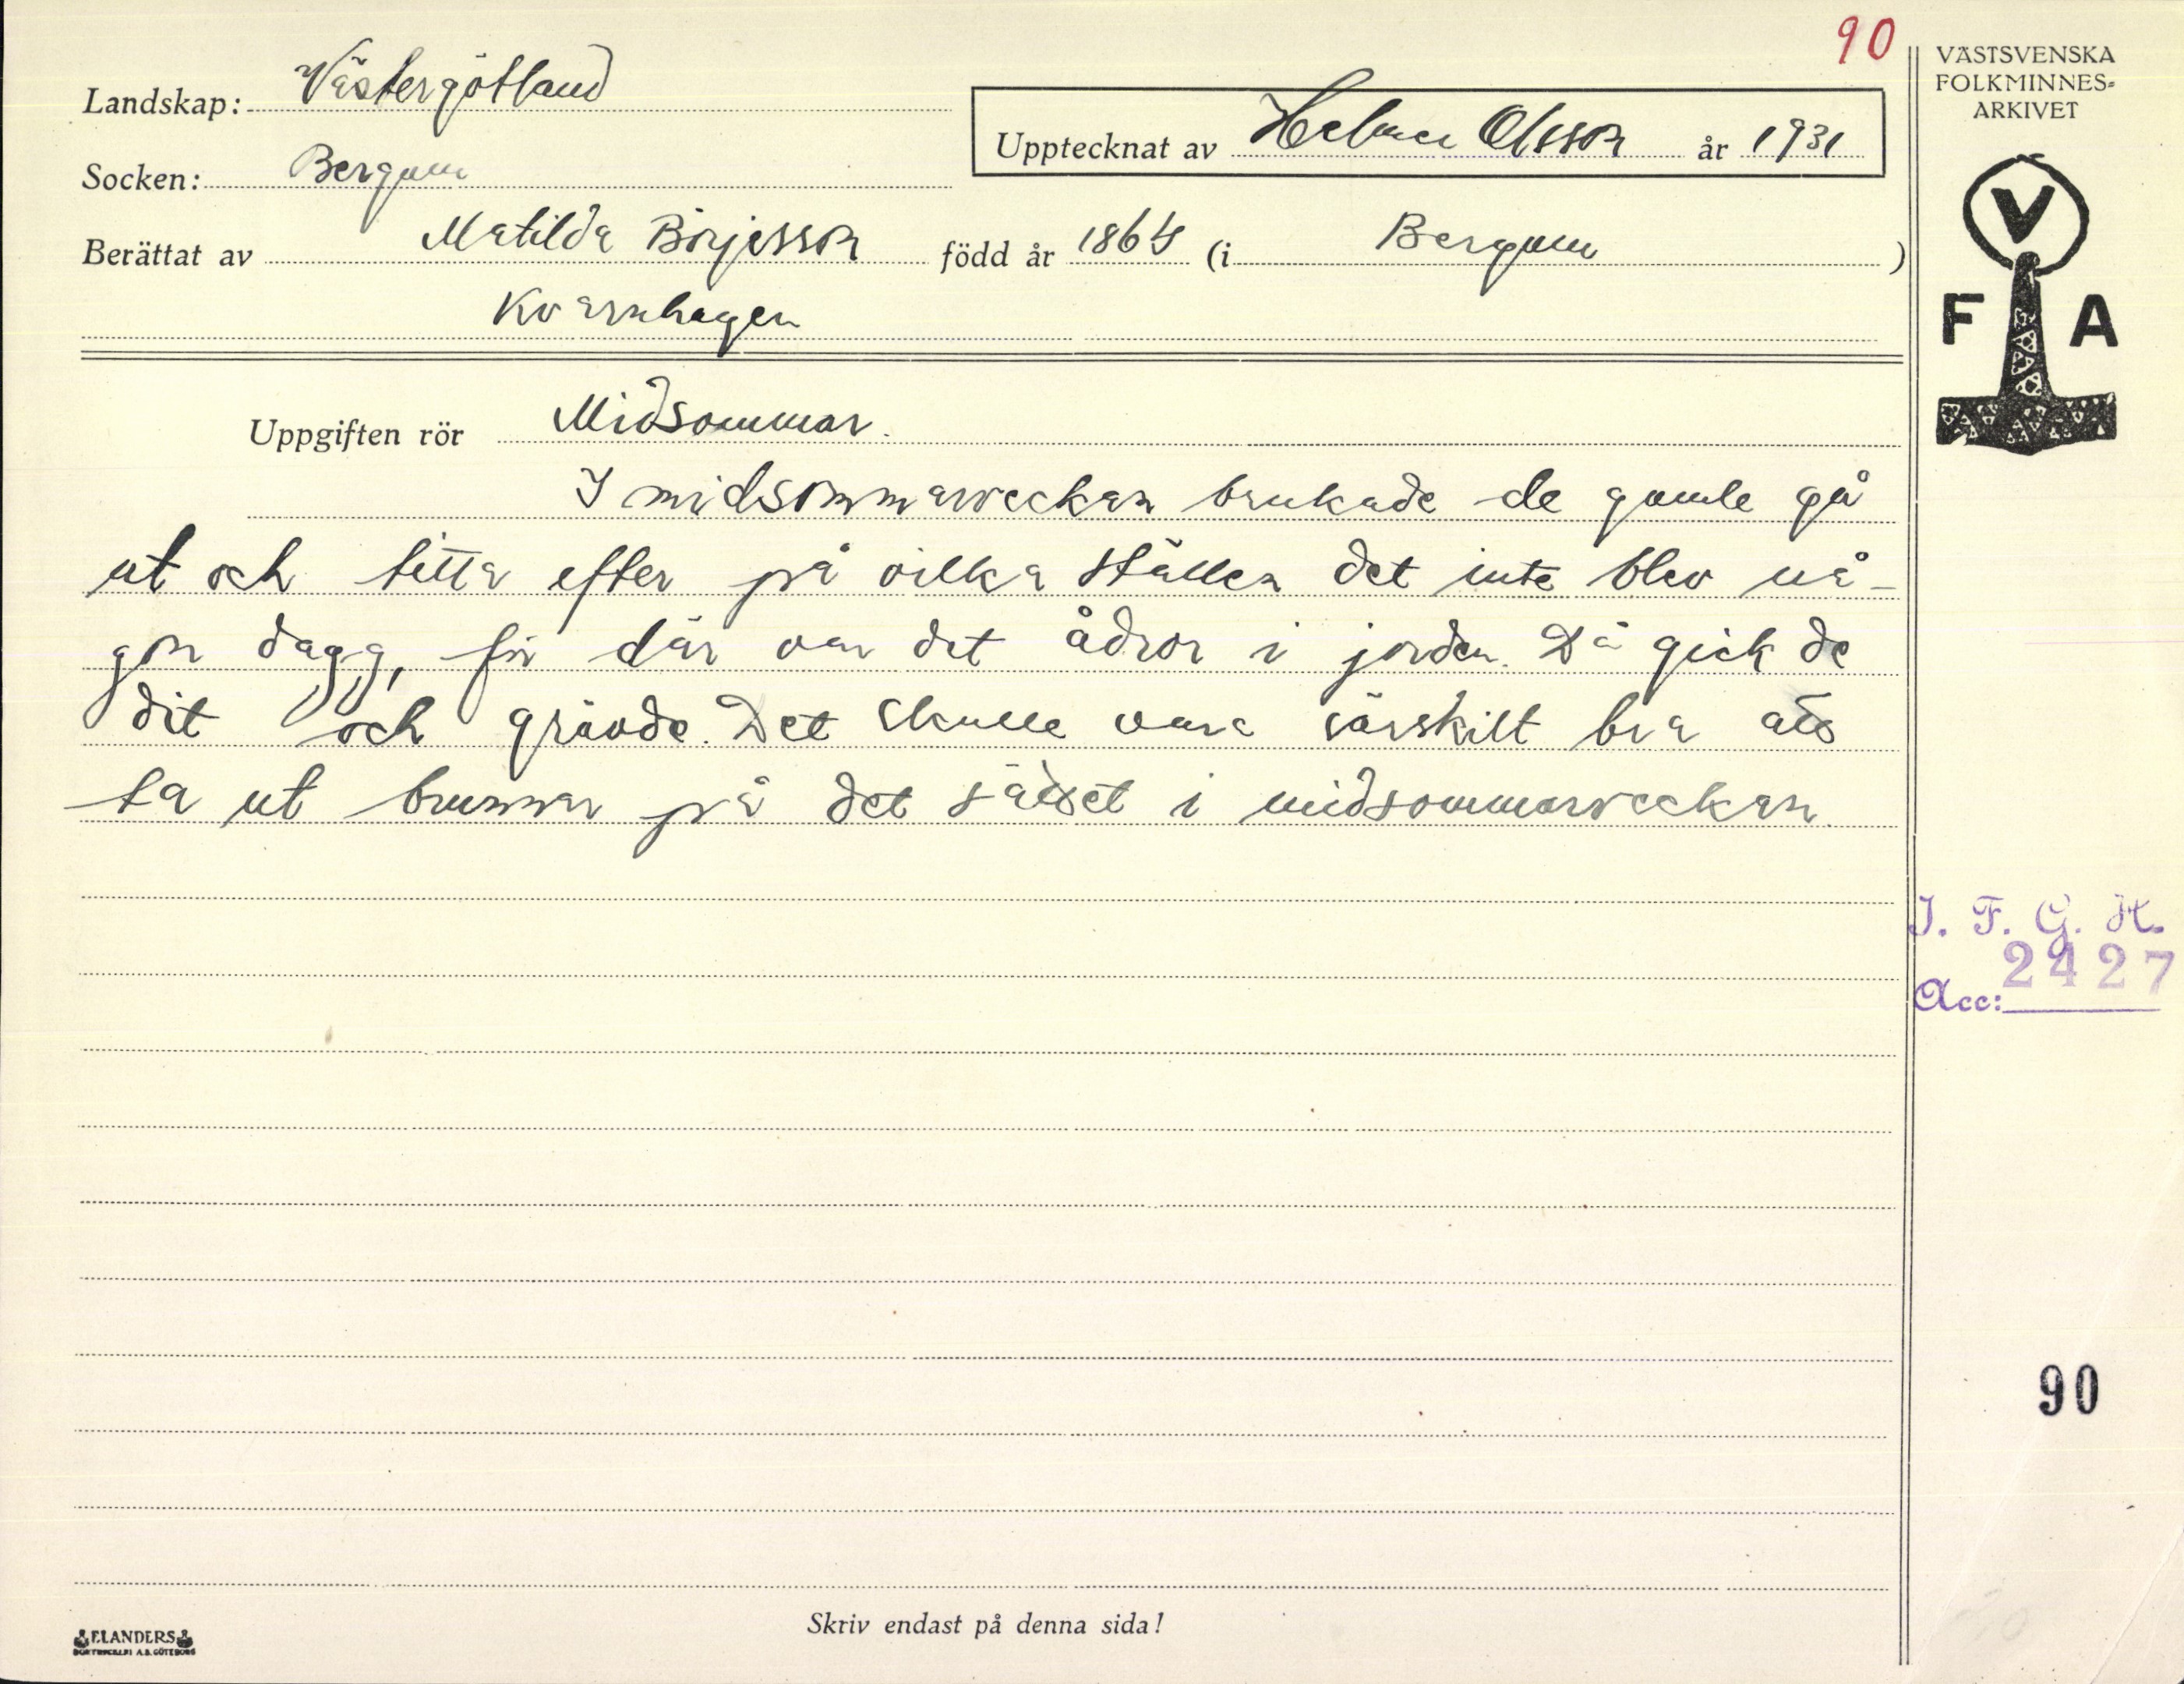 90
Landskap: Västergötland
Socken: Bergum
Upptecknat av Helmer Olsson år 1931
Berättat av Matilda Börjesson född år 1864 (i Bergum)
Kvarnhagen
Uppgiften rör Midsommar.
I midsommarveckan brukade de gamle gå
ut och titta efter på vilka ställen det inte blev nå-
gon dagg, för där var det ådror i jorden. Då gick de
dit och grävde. Det skulle vara särskilt bra att
ta ut brunnar på det sättet i midsommarveckan.
Skriv endast på denna sida!
ELANDERS
BOKTRYCKERI A.B. GÖTEBORG
VÄSTSVENSKA
FOLKMINNES=
ARKIVET
V
F A
I. F. G. H.
2427
Acc:
90